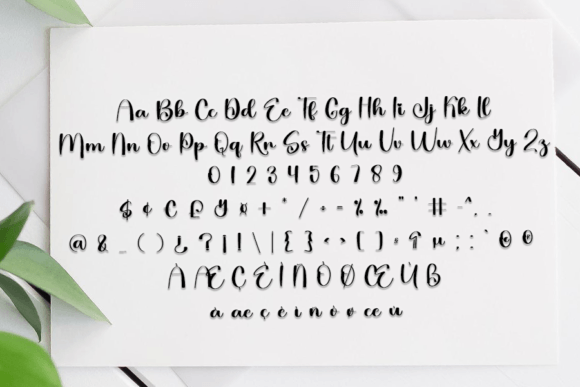 Aa Bb Cc Dd Ee Ff Gg Hh Ii Jj Kk Ll
Mm Nn Oo Pp Qq Rr Ss Tt Uu Vv Ww Xx Yy Zz
0 1 2 3 4 5 6 7 8 9
$ ¢ € £ ¥ ¤ + * / ÷ = % ‰ " ' # ^ , .
@ & _ ( ) ¿ ? ¡ ! \ | { } < > [ ] ¶ µ ; : `
À Æ Ç È Ì Ñ Ò Ø Œ Ù ß
à æ ç è ì ñ ò ø œ ù